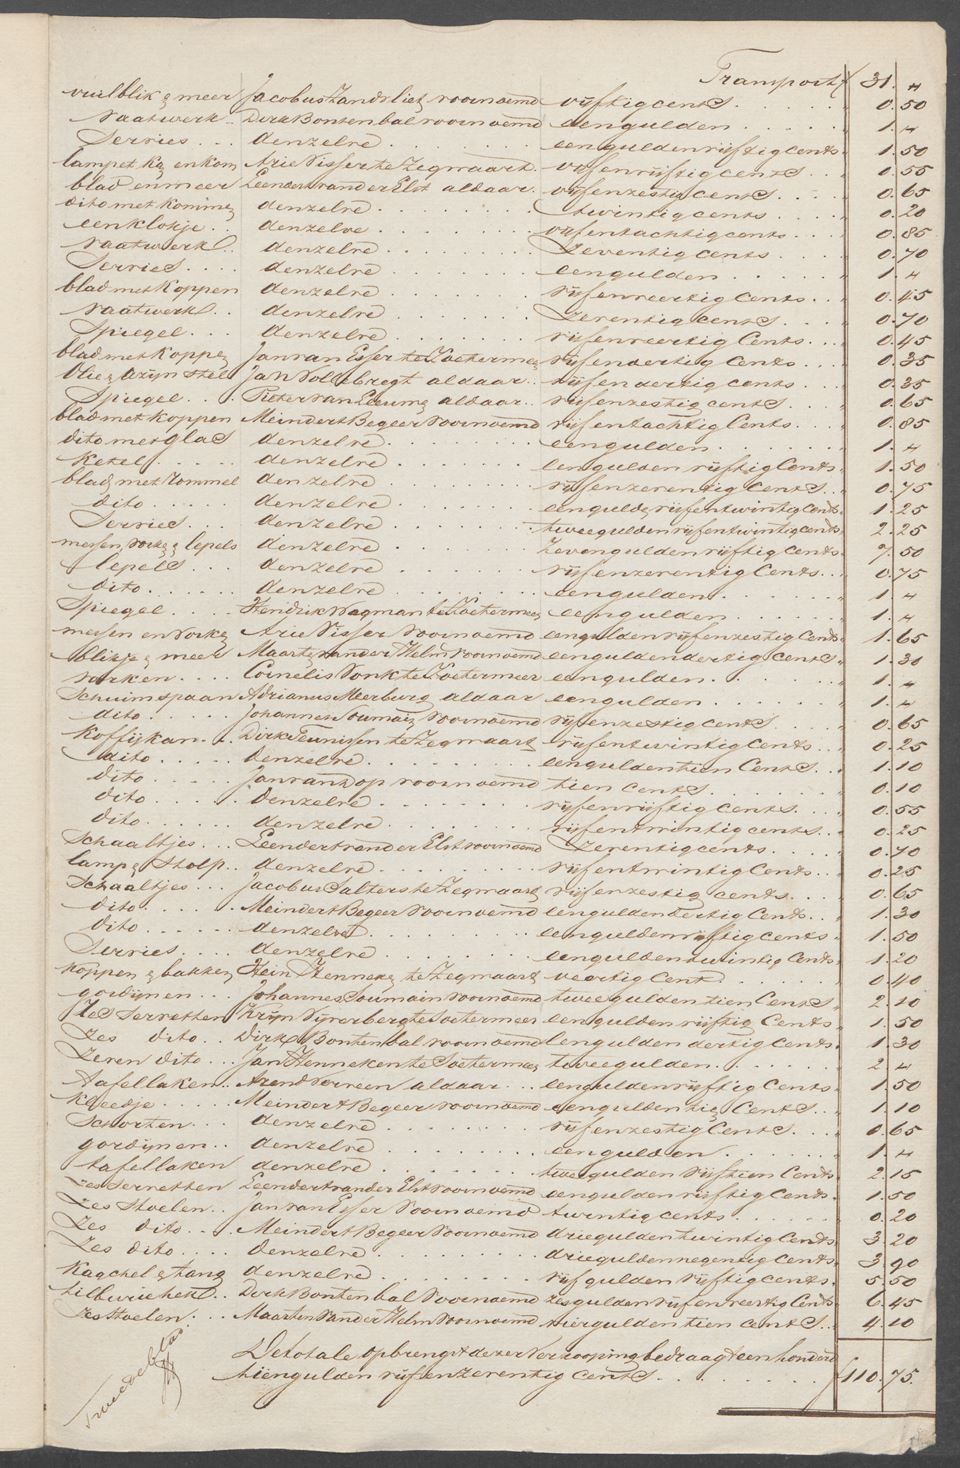 Transport f 31. "
vuilblik & meer Jacobus Zandvliet voornoemd vijftig cents 0.50
vaatwerk Dirk Bontenbal voornoemd een gulden 1. "
Servies denzelve een gulden vijftig cents 1.50
lampet ka en kom Arie Visser te Zegwaart vijf en vijftig cents 0.55
blad en meer Leendert van der Elst aldaar vijf en zestig cents 0.65
dito met komme denzelve twintig cents 0.20
een klokje denzelve vijf en tachtig cents 0.85
vaatwerk denzelve Zeventig cents 0.70
Servies denzelve een gulden 1. "
blad met koppen denzelve vijf en veertig Cents 0.45
vaatwerk denzelve Zeventig cents 0.70
Spiegel denzelve vijf en veertig Cents 0.45
blad met koppen Jan van Esser te Zoetermeer vijf en dertig Cents 0.35
Olie & Azijn stel Jan Vollebregt aldaar vijf en dertig cents 0.35
Spiegel Pieter van Leeuwe aldaar vijf en zestig cents 0.65
blad met koppen Meindert Begeer voornoemd vijf en tachtig Cents 0.85
dito met glas denzelve een gulden 1. "
Ketel denzelve een gulden vijftig Cents 1.50
blad met rommel denzelve vijf en zeventig Cents 0.75
dito denzelve een gulde vijf en twintig Cents 1.25
Servies denzelve twee gulden vijf en twintig cents 2.25
messen, vorke & lepels denzelve Zeven gulden vijftig Cents 7.50
lepels denzelve vijf en zeventig Cents 0.75
dito denzelve een gulden 1. "
Spiegel Hendrik Wagman te Zoetermeer een gulden 1. "
messen en vorke Arie Visser voornoemd een gulden vijf en zestig Cents 1.65
blikje & meer Maarten van der Helm voornoemd een gulden dertig Cents 1.30
varken Cornelis Vonk te Zoetermeer een gulden 1. "
Schuimspaan Adrianus Meerburg aldaar een gulden 1. "
dito Johannes Soumain voornoemd vijf en zestig cents 0.65
Koffijkan Dirk Teunissen te Zegwaart vijf en twintig cents 0.25
dito denzelve een gulden tien Cents 1.10
dito Jan van Dop voornoemd tien cents 0.10
dito Denzelve vijf en vijftig cents 0.55
dito denzelve vijf en twintig cents 0.25
Schaaltjes Leendert van der Elst voornoemd Zeventig cents 0.70
lamp & Stolp denzelve vijf en twintig Cents 0.25
Schaaltjes Jacobus Salters te Zegwaart vijf en zestig cents 0.65
dito Meindert Begeer voornoemd een gulden dertig Cents 1.30
dito denzelve een gulden vijftig cents 1.50
Servies denzelve een gulden twintig Cents 1.20
koppen & bakken Hein Henneke te Zegwaart veertig Cent 0.40
gordijnen Johannes Soumain voornoemd twee gulden tien Cents 2.10
Zes Servetten Krijn Vijverberg te Zoetermeer een gulden vijftig Cents 1.50
Zes dito Dirk Bontenbal voornoemd een gulden dertig Cents 1.30
Zeven dito Jan Henneken te Zoetermeer twee gulden 2. "
tafellaken Arend Verveen aldaar een gulden vijftig cents 1.50
Kleedje Meindert Begeer voornoemd een gulden tig Cents 1.10
Schorten denzelve vijf en zestig Cents 0.65
gordijnen denzelve een gulden 1. "
tafellaken denzelve twee gulden vijftien Cents 2.15
zes servetten Leendert van der Elst voornoemd een gulden vijftig cents 1.50
Zes Stoelen Jan van Esser voornoemd twintig cents 0.20
Zes dito Meindert Begeer voornoemd drie gulden twintig Cents 3.20
Zes dito Denzelve drie gulden negentig cents 3.90
Kagchel & tang denzelve vijf gulden vijftig cents 5.50
Dirk Bontenbal voornoemd zes gulden vijf en veertig Cents 6.45
zes Stoelen Maarten van der Helm voornoemd vier gulden tien cents 4.10
De totale opbrengst dezer Verkooping bedraagt een honderd
tien gulden vijf en zeventig cents f 110.75.
Tweede blad